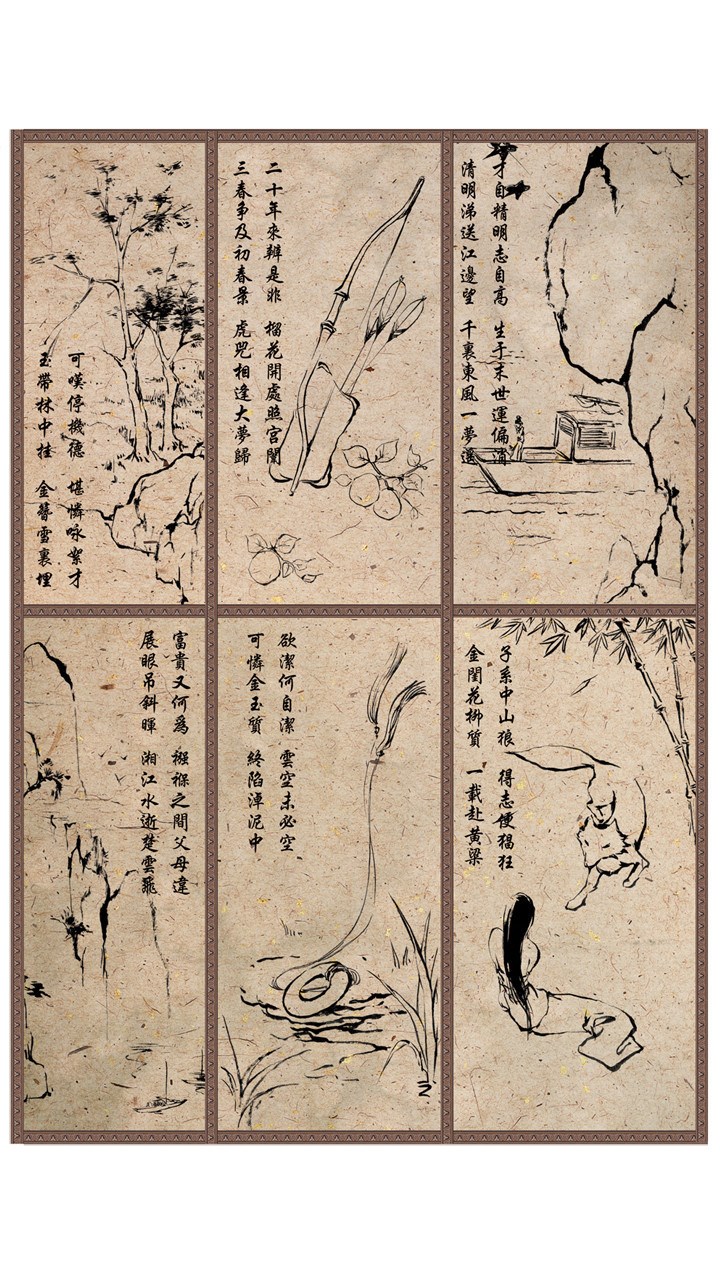 可嘆停機德 堪憐咏絮才
玉帶林中挂 金簪雪裏埋
二十年來辨是非 榴花開處照宮闈
三春争及初春景 虎兕相逢大夢歸
才自精明志自高 生于末世運偏消
清明涕送江邊望 千裏東風一夢遥
富貴又何爲 襁褓之間父母違
展眼吊斜暉 湘江水逝楚雲飛
欲潔何自潔 雲空未必空
可憐金玉質 終陷淖泥中
子系中山狼 得志便猖狂
金閨花柳質 一載赴黄粱